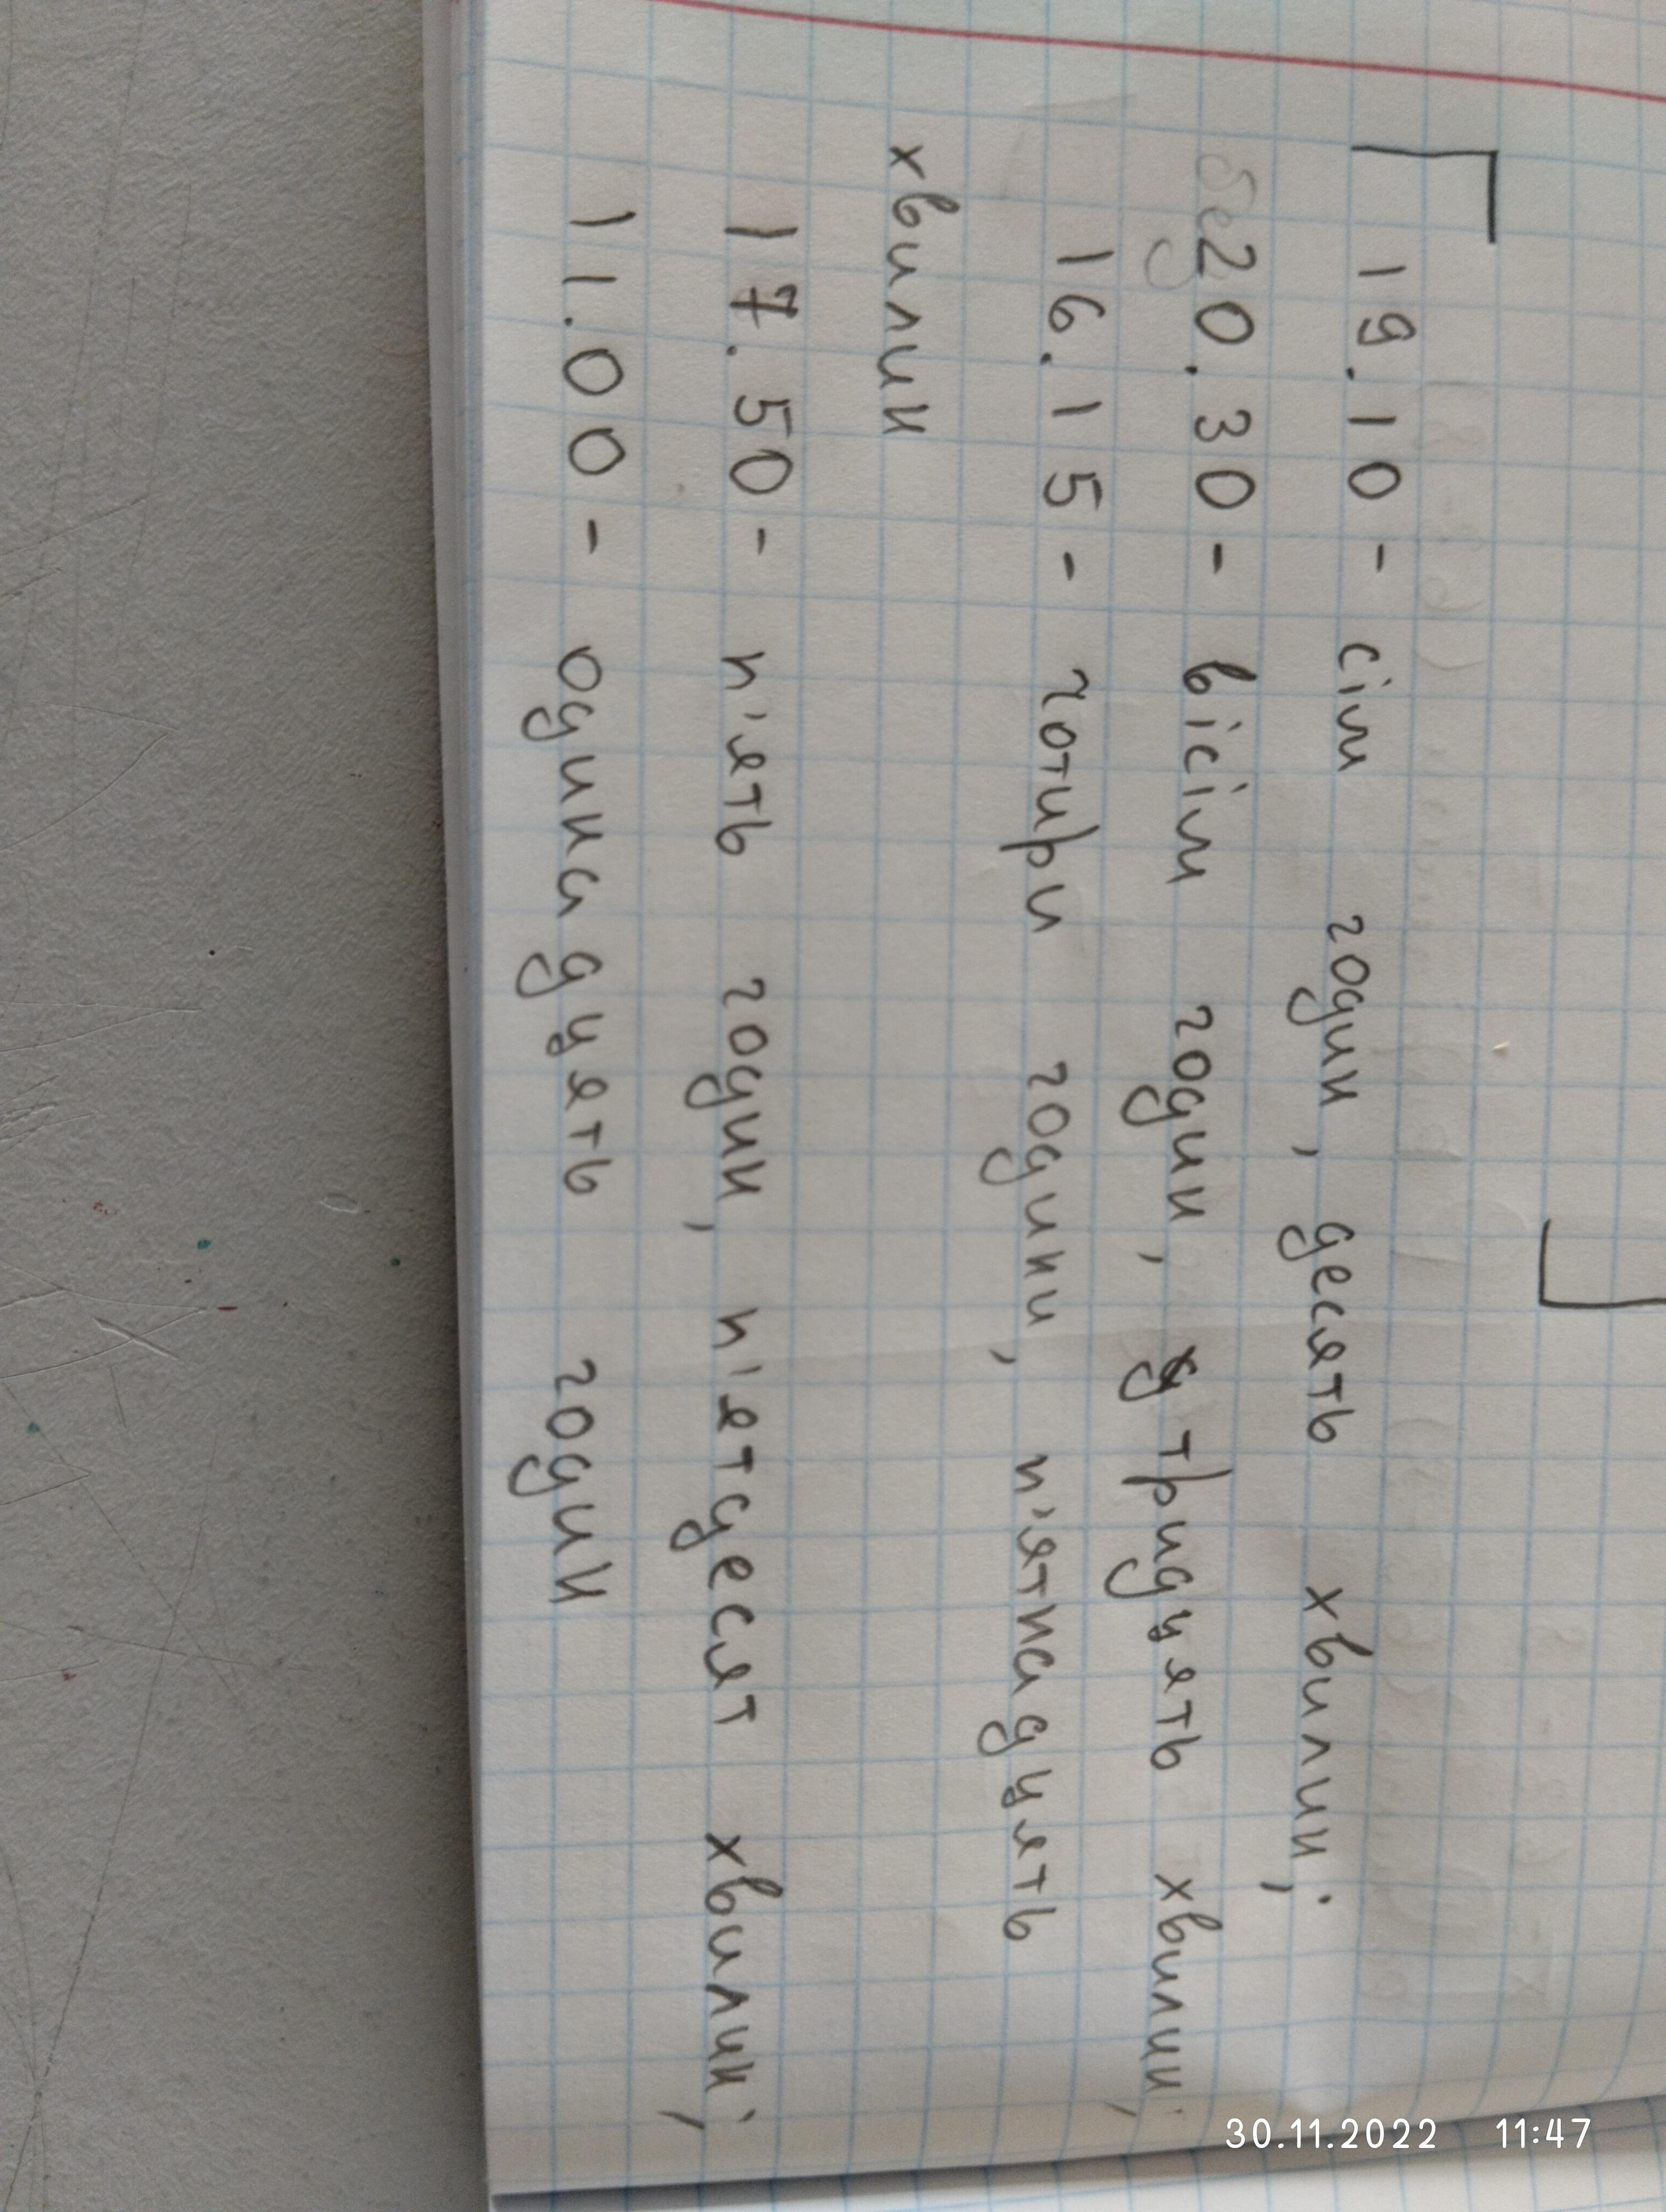 19.10 - сім годин, десять хвилин;
20.30 - вісім годин, тридцять хвилин;
16.15 - чотири години, п'ятнадцять
хвилин
17.50 - п'ять годин, п'ятдесят хвилин;
11.00 - одинадцять годин
30.11.2022 11:47